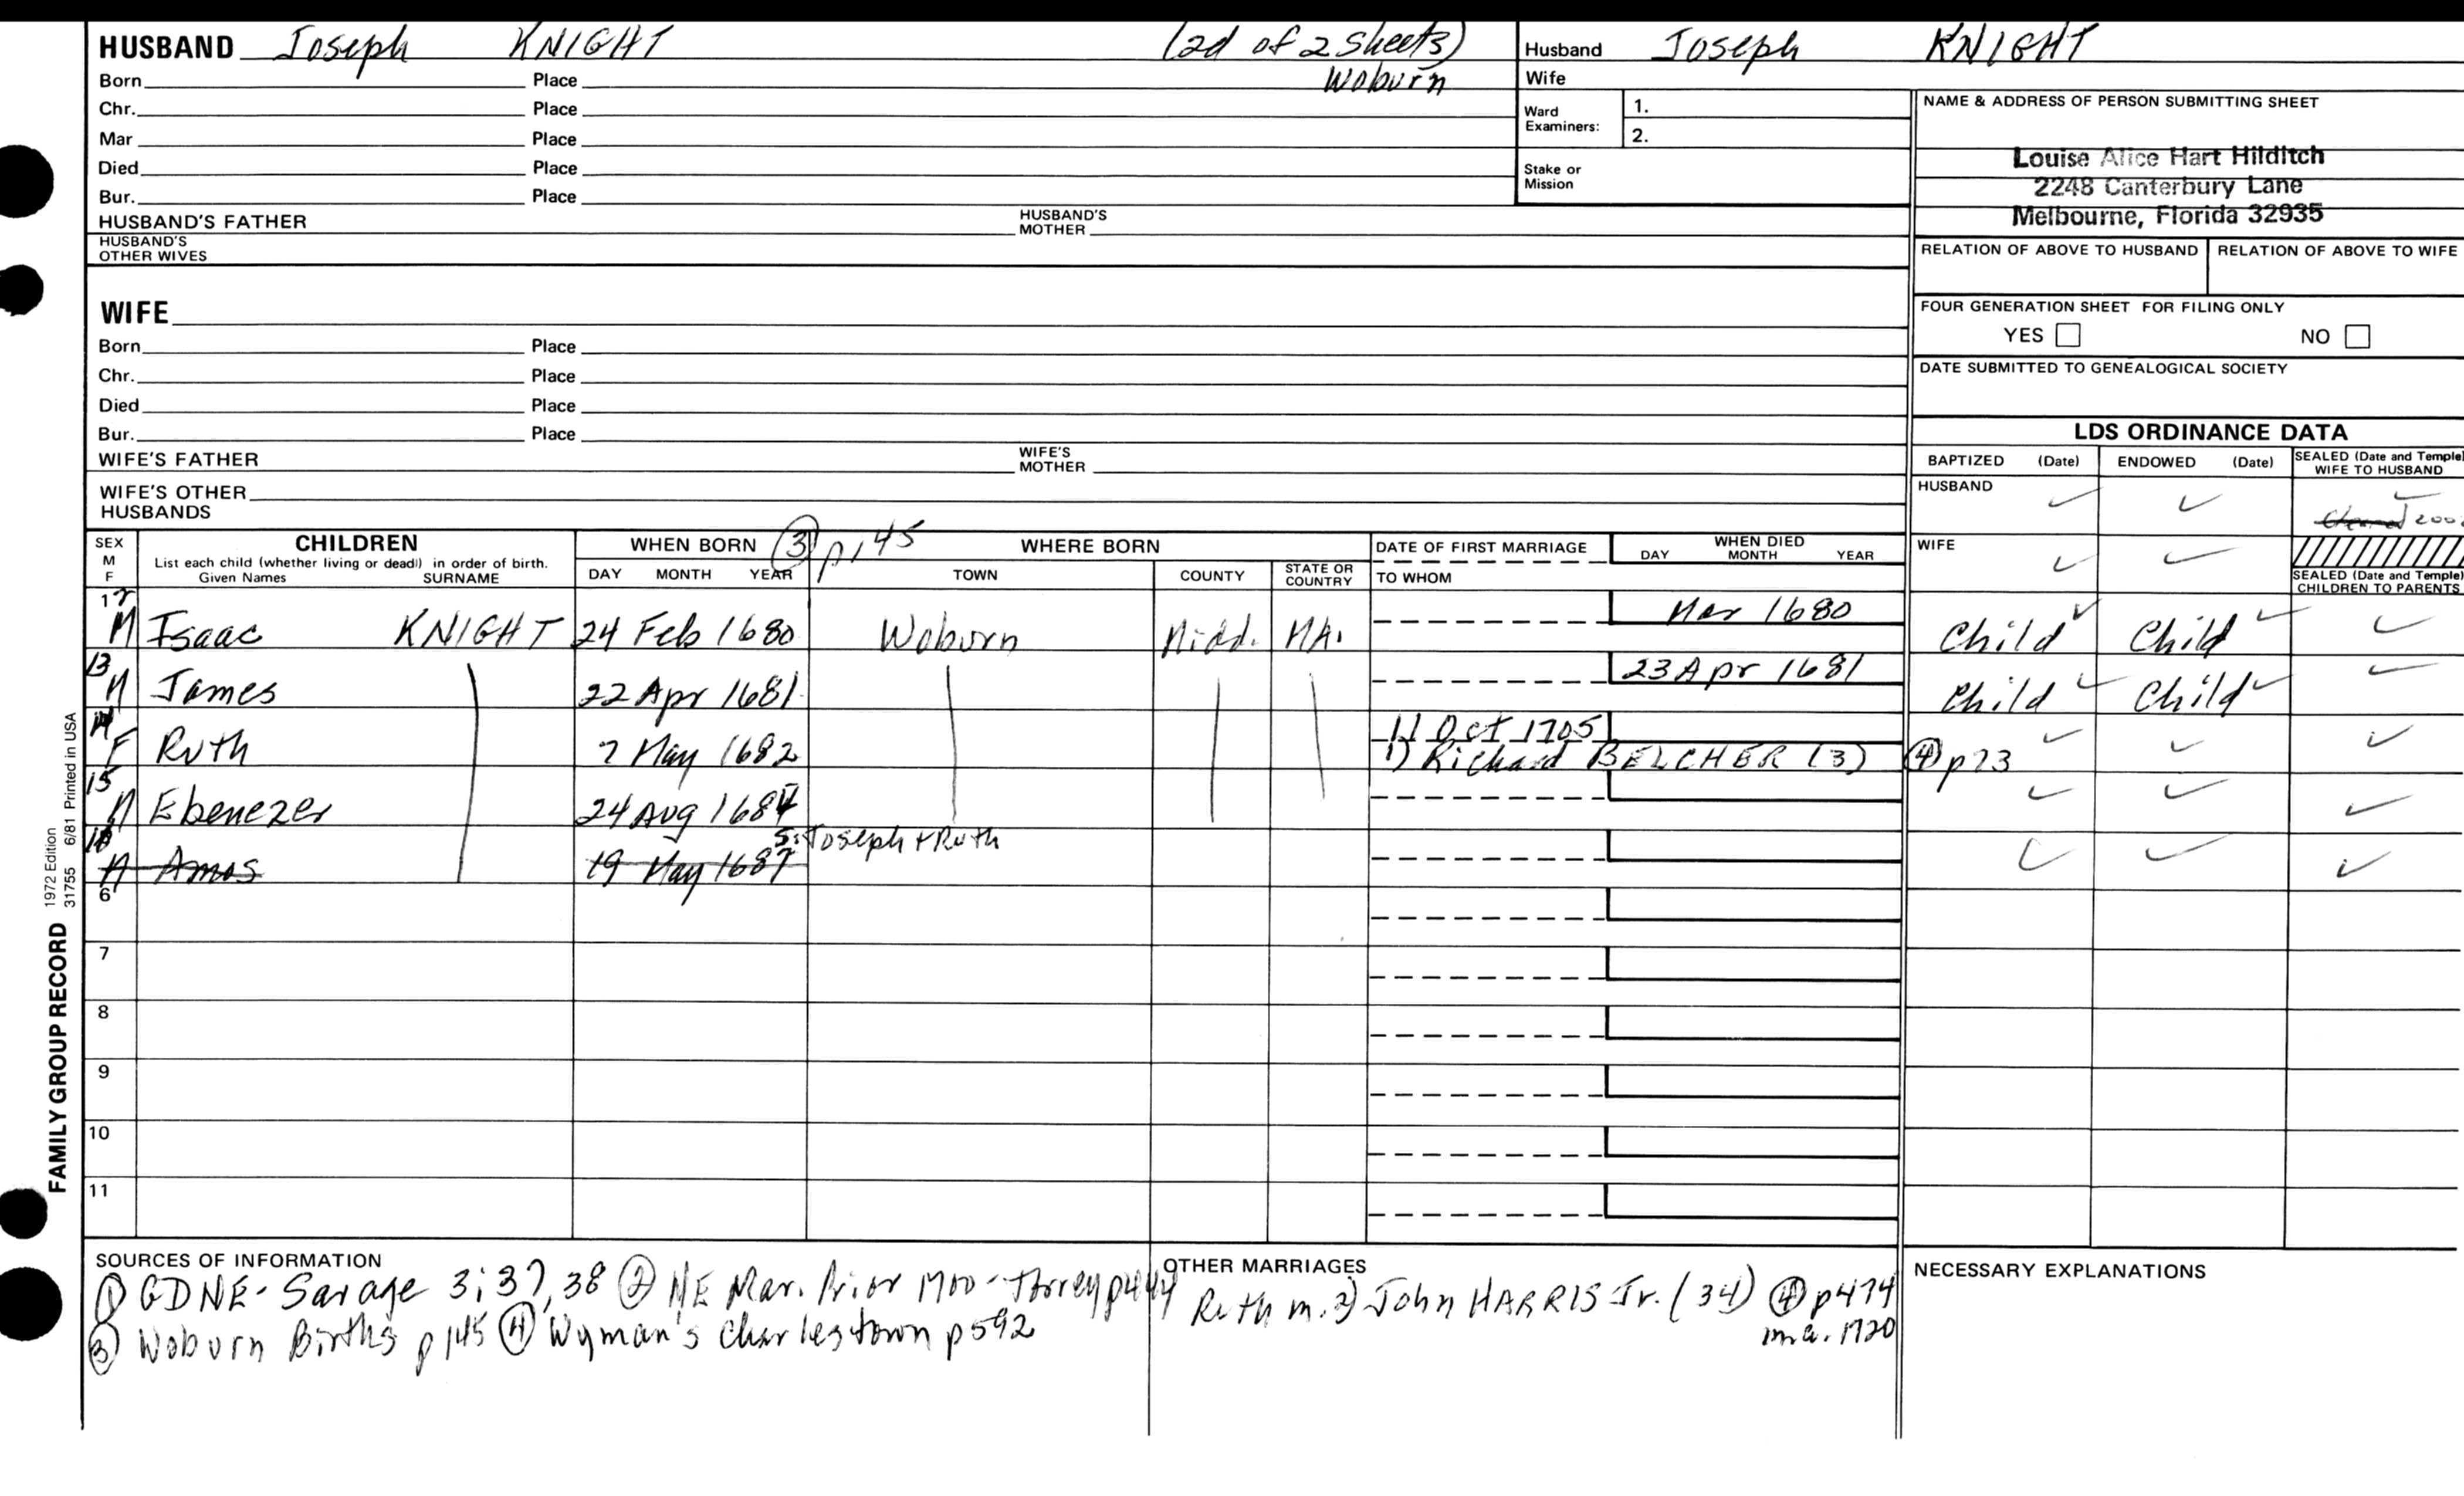 HUSBAND Joseph KNIGHT (2d of 2 Sheets)
Born Place Woburn
Chr. Place
Mar Place
Died Place
Bur. Place
HUSBAND'S FATHER HUSBAND'S MOTHER
HUSBAND'S OTHER WIVES
Husband Joseph KNIGHT
Wife
Ward Examiners: 1.
2.
Stake or Mission
NAME & ADDRESS OF PERSON SUBMITTING SHEET
Louise Alice Hart Hilditch
2248 Canterbury Lane
Melbourne, Florida 32935
RELATION OF ABOVE TO HUSBAND RELATION OF ABOVE TO WIFE
FOUR GENERATION SHEET FOR FILING ONLY
YES NO
DATE SUBMITTED TO GENEALOGICAL SOCIETY
WIFE
Born Place
Chr. Place
Died Place
Bur. Place
WIFE'S FATHER WIFE'S MOTHER
WIFE'S OTHER HUSBANDS
LDS ORDINANCE DATA
BAPTIZED (Date) ENDOWED (Date) SEALED (Date and Temple) WIFE TO HUSBAND
HUSBAND ✓ ✓ ✓
WIFE ✓ ✓
SEALED (Date and Temple) CHILDREN TO PARENTS
SEX M F CHILDREN WHEN BORN (3) p145 WHERE BORN DATE OF FIRST MARRIAGE WHEN DIED
List each child (whether living or dead) in order of birth.
Given Names SURNAME DAY MONTH YEAR TOWN COUNTY STATE OR COUNTRY TO WHOM DAY MONTH YEAR
12 M Isaac KNIGHT 24 Feb 1680 Woburn Midd. MA. Mar 1680 Child ✓ Child ✓ ✓
13 M James 22 Apr 1681 23 Apr 1681 Child ✓ Child ✓ ✓
14 F Ruth 7 May 1682 1) Oct 1705 ✓ ✓ ✓
1) Richard BELCHER (3) (4) p73
15 M Ebenezer 24 Aug 1684 ✓ ✓ ✓
S: Joseph + Ruth
16 M Amos 19 May 1687 ✓ ✓ ✓
6
7
8
9
10
11
FAMILY GROUP RECORD 1972 Edition
31755 6/81 Printed in USA
SOURCES OF INFORMATION
(1) GDNE- Savage 3:37, 38 (2) NE Mar. Prior 1700 - Torrey p444
(3) Woburn Births p145 (4) Wyman's Charlestown p592
OTHER MARRIAGES
Ruth m. 2) John HARRIS Jr. (34) (4) p474
1720
NECESSARY EXPLANATIONS